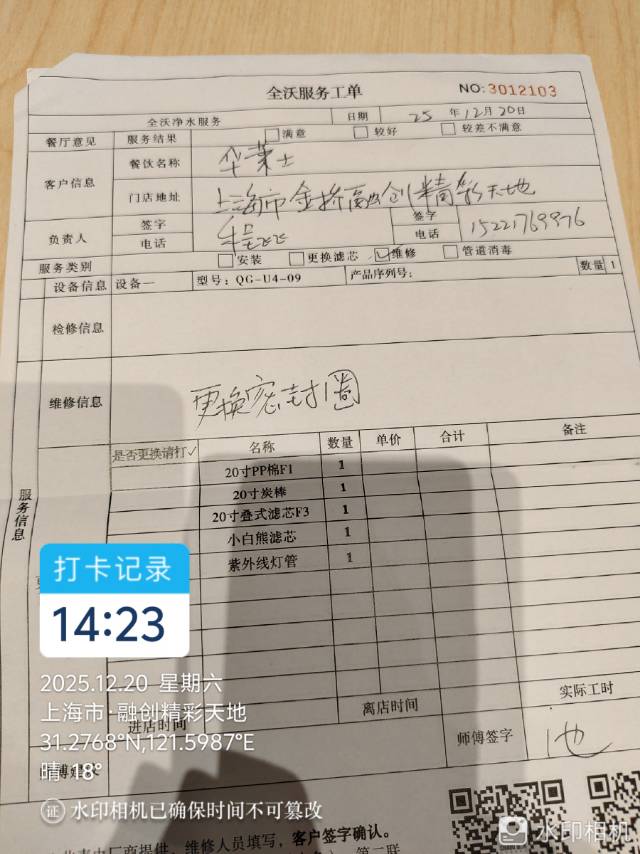 全沃服务工单
NO:3012103
全沃净水服务 日期 25 年12月20日
餐厅意见 服务结果 满意 较好 较差不满意
客户信息 餐饮名称 华莱士
门店地址 上海市金桥融创精彩天地
负责人 签字 签字
电话 电话 15221769976
服务类别 安装 更换滤芯 维修 管道消毒
设备信息 设备一 型号: QG-U4-09 产品序列号: 数量 1
检修信息
维修信息 更换密封圈
服务信息
是否更换请打✓ 名称 数量 单价 合计 备注
20寸PP棉F1 1
20寸炭棒 1
20寸叠式滤芯F3 1
小白熊滤芯 1
紫外线灯管 1
打卡记录
14:23
2025.12.20 星期六
上海市·融创精彩天地
31.2768°N,121.5987°E
晴 18°
进店时间 离店时间 实际工时
师傅签字
证 水印相机已确保时间不可篡改
厂商提供、维修人员填写，客户签字确认。
第二联
水印相机